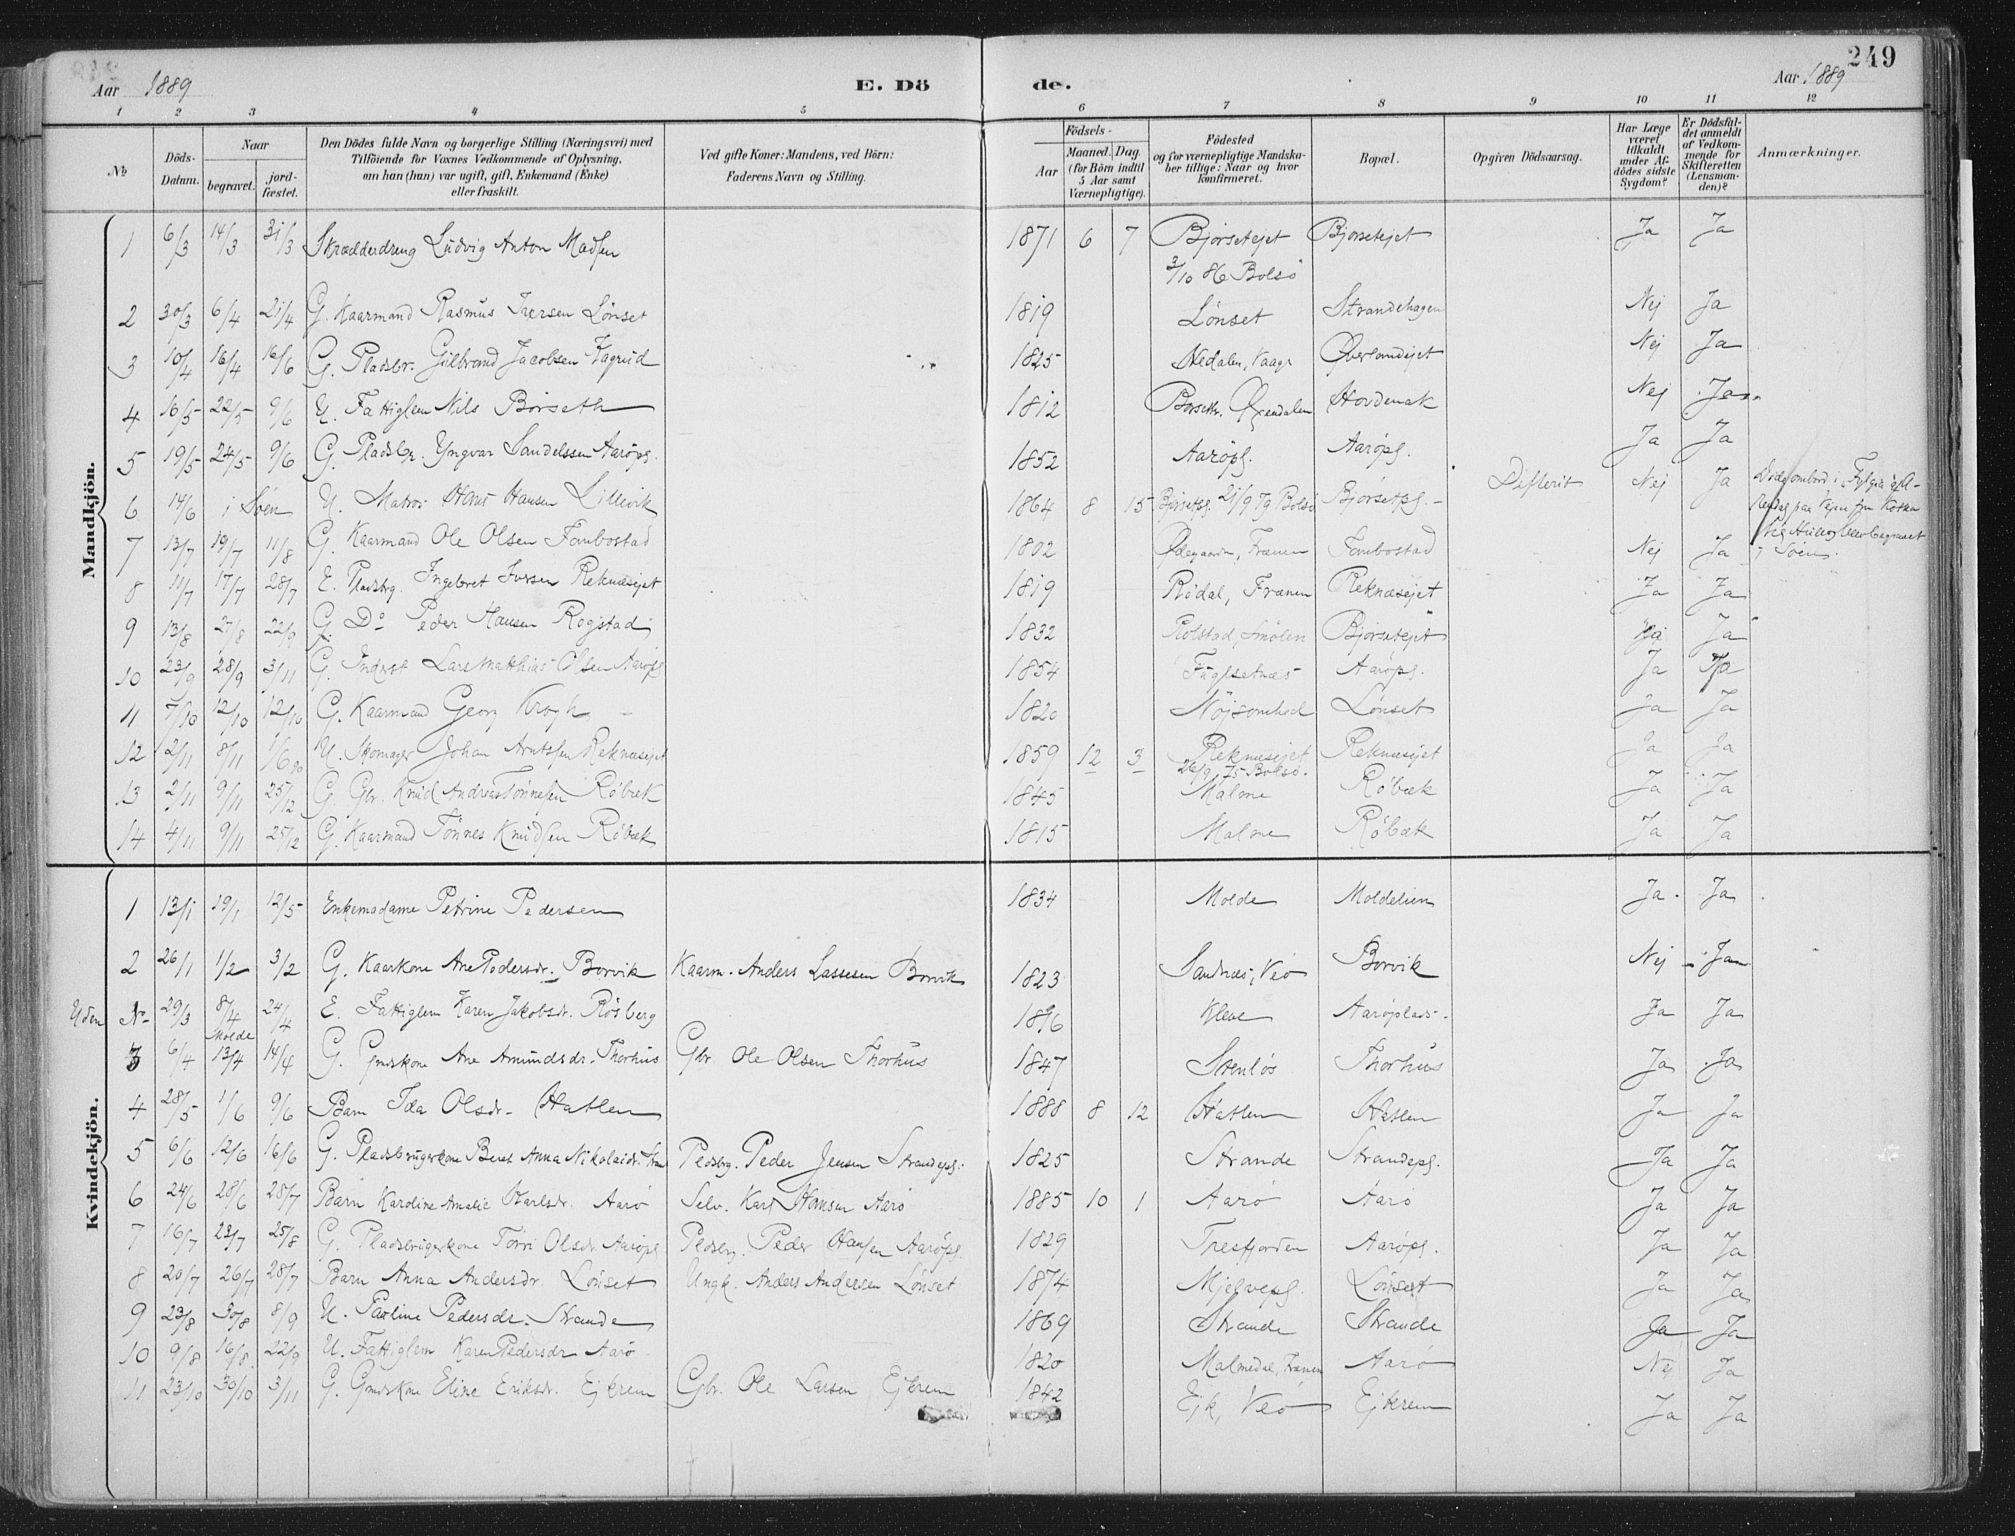 249
Aar 1889 E. Döde. Aar 1889
1 2 3 4 5 6 7 8 9 10 11 12
№
Döds-Datum.
Naar
begravet.
jordfæstet.
Den Dödes fulde Navn og borgerlige Stilling (Næringsvei) med Tilföiende for Voxnes Vedkommende af Oplysning, om han (hun) var ugift, gift, Enkemand (Enke) eller fraskilt.
Ved gifte Koner: Mandens, ved Börn: Faderens Navn og Stilling.
Födsels-
Aar
Maaned. Dag.
(for Börn indtil 5 Aar samt Værnepligtige).
Födested og for værnepligtige Mandskaber tillige: Naar og hvor konfirmeret.
Bopæl.
Opgiven Dödsaarsag.
Har Læge været tilkaldt under Afdödes sidste Sygdom?
Er Dödsfaldet anmeldt af Vedkommende for Skifteretten (Lensmanden)?
Anmærkninger.
Mandkjön.
1 6/3 14/3 31/3 Skrædderdreng Ludvig Anton Madsen 1871 6 7 Bjørsetejet Bjørsetejet Ja Ja
3/10 86 Bolsø
2 30/3 6/4 21/4 G. Kaarmand Rasmus Iversen Lønset 1819 Lønset Strandehagen Nej Ja
3 10/4 16/4 16/6 G. Pladsbr. Gilbrand Jacobsen 1825 Øverlandejet Nej Ja
4 16/5 22/5 9/6 U. Fattiglem Nils Børseth 1812 Øxendalen Hovdenak Nej Ja
5 19/5 24/5 9/6 G. Pladsbr. Yngvar Aarøpl. 1852 Aarøpl. Aarøpl. Ja Ja
6 14/6 i Søen U. Matros Hans Hansen Lillevik 1864 8 15 Bjørsetpl. 21/9 79 Bolsø Bjørsetpl. Difterit Nej Ja
7 13/7 19/7 11/8 G. Kaarmand Ole Olsen Fanbostad 1802 Ødegaarden, Frænen Fanbostad Nej Ja i Søen.
8 11/7 17/7 28/7 E. Pladsbrg. Ingebret Iversen Reknæsejet 1819 Rødal, Frænen Reknæsejet Ja Ja
9 13/8 21/8 22/9 G. Do Peder Hansen Rogstad 1832 Rolstad, Smølen Bjørsetejet Ja Ja
10 23/9 28/9 3/11 G. Inderst Lars Matthias Olsen Aarøpl 1854 Fuglsetnæs Aarøpl. Ja Ja
11 7/10 12/10 12/10 G. Kaarmand Georg Krogh 1820 Nøjsomhed Lønset Ja Ja
12 2/11 8/11 1/6 90 U. Skomager Johan Arntsen Reknæsejet 1859 12 3 Reknæsejet Reknæsejet Ja Ja
26/9 75 Bolsø.
13 2/11 9/11 25/12 G. Gbr. Knud Andreas Tønnesen Røbæk 1845 Malme Røbæk Ja Ja
14 4/11 9/11 25/12 G. Kaarmand Tønnes Knudsen Røbæk 1815 Malme Røbæk Ja Ja
Kvindekjön.
1 13/1 19/1 12/5 Enkemadame Petrine Pedersen 1834 Molde Moldelien Ja Ja
2 26/1 1/2 3/2 G. Kaarkone Ane Pedersdr. Borvik Kaarm. Anders Lassesen Borvik 1823 Sandnæs, Veø Borvik Nej Ja
Uden No 29/3 8/4 Molde 24/4 E. Fattiglem Karen Jakobsdr. Røsberg Kleve Aarøplads. Ja Ja
3 6/4 13/4 14/4 G. Gmdskone Ane Amundsdr. Thorhus Gbr. Ole Olsen Thorhus 1847 Stenløs Thorhus Ja Ja
4 28/5 1/6 9/6 Barn Ida Olsdr. Hatlen 1888 8 12 Hatlen Hatlen Ja Ja
5 6/6 12/6 16/6 G. Pladsbrugerkone Beret Anna Nikolaidr. Pldsbrg. Peder Jensen Strandepl. 1825 Strande Strandepl. Ja Ja
6 24/6 28/6 28/7 Barn Karoline Amalie Karlsdr. Aarø Selv. Karl Hansen Aarø 1885 10 1 Aarø Aarø Ja Ja
7 16/7 23/7 25/8 G. Pladsbrugerkone Torri Olsdr. Aarøpl Pldsbrg. Peder Hansen Aarøpl. 1829 Tresfjorden Aarøpl. Ja Ja
8 20/7 26/7 28/7 Barn Anna Andersdr. Lønset Ungk. Anders Andersen Lønset 1874 Mjelvepl. Lønset Ja Ja
9 23/8 30/8 8/9 U. Pauline Pedersdr. Strande 1869 Strande Strande Ja Ja
10 9/8 16/8 22/9 U. Fattiglem Karen Pedersdr Aarø 1820 Malmedal, Frænen Aarø Nej Ja
11 23/10 30/10 3/11 G. Gmdskone Eline Eriksdr. Ejkrem Gbr. Ole Larsen Ejkrem 1842 Ejk, Veø Ejkrem Ja Ja